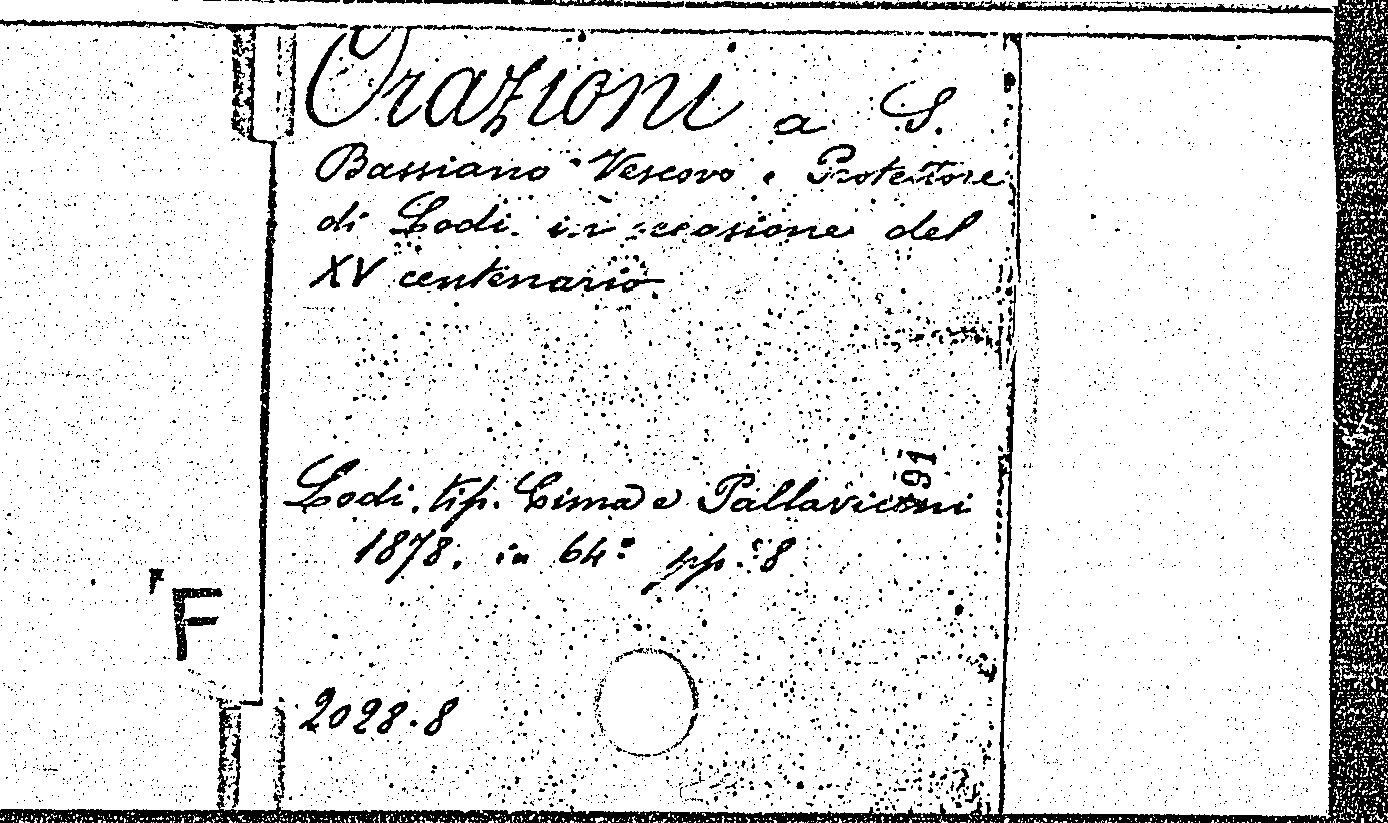 Orazioni a S.
Bassiano Vescovo e Protettore
di Lodi in occasione del
XV centenario
Lodi, tip. Cima e Pallavicini
1878. in 64° pp. 8
2028.8
191
F